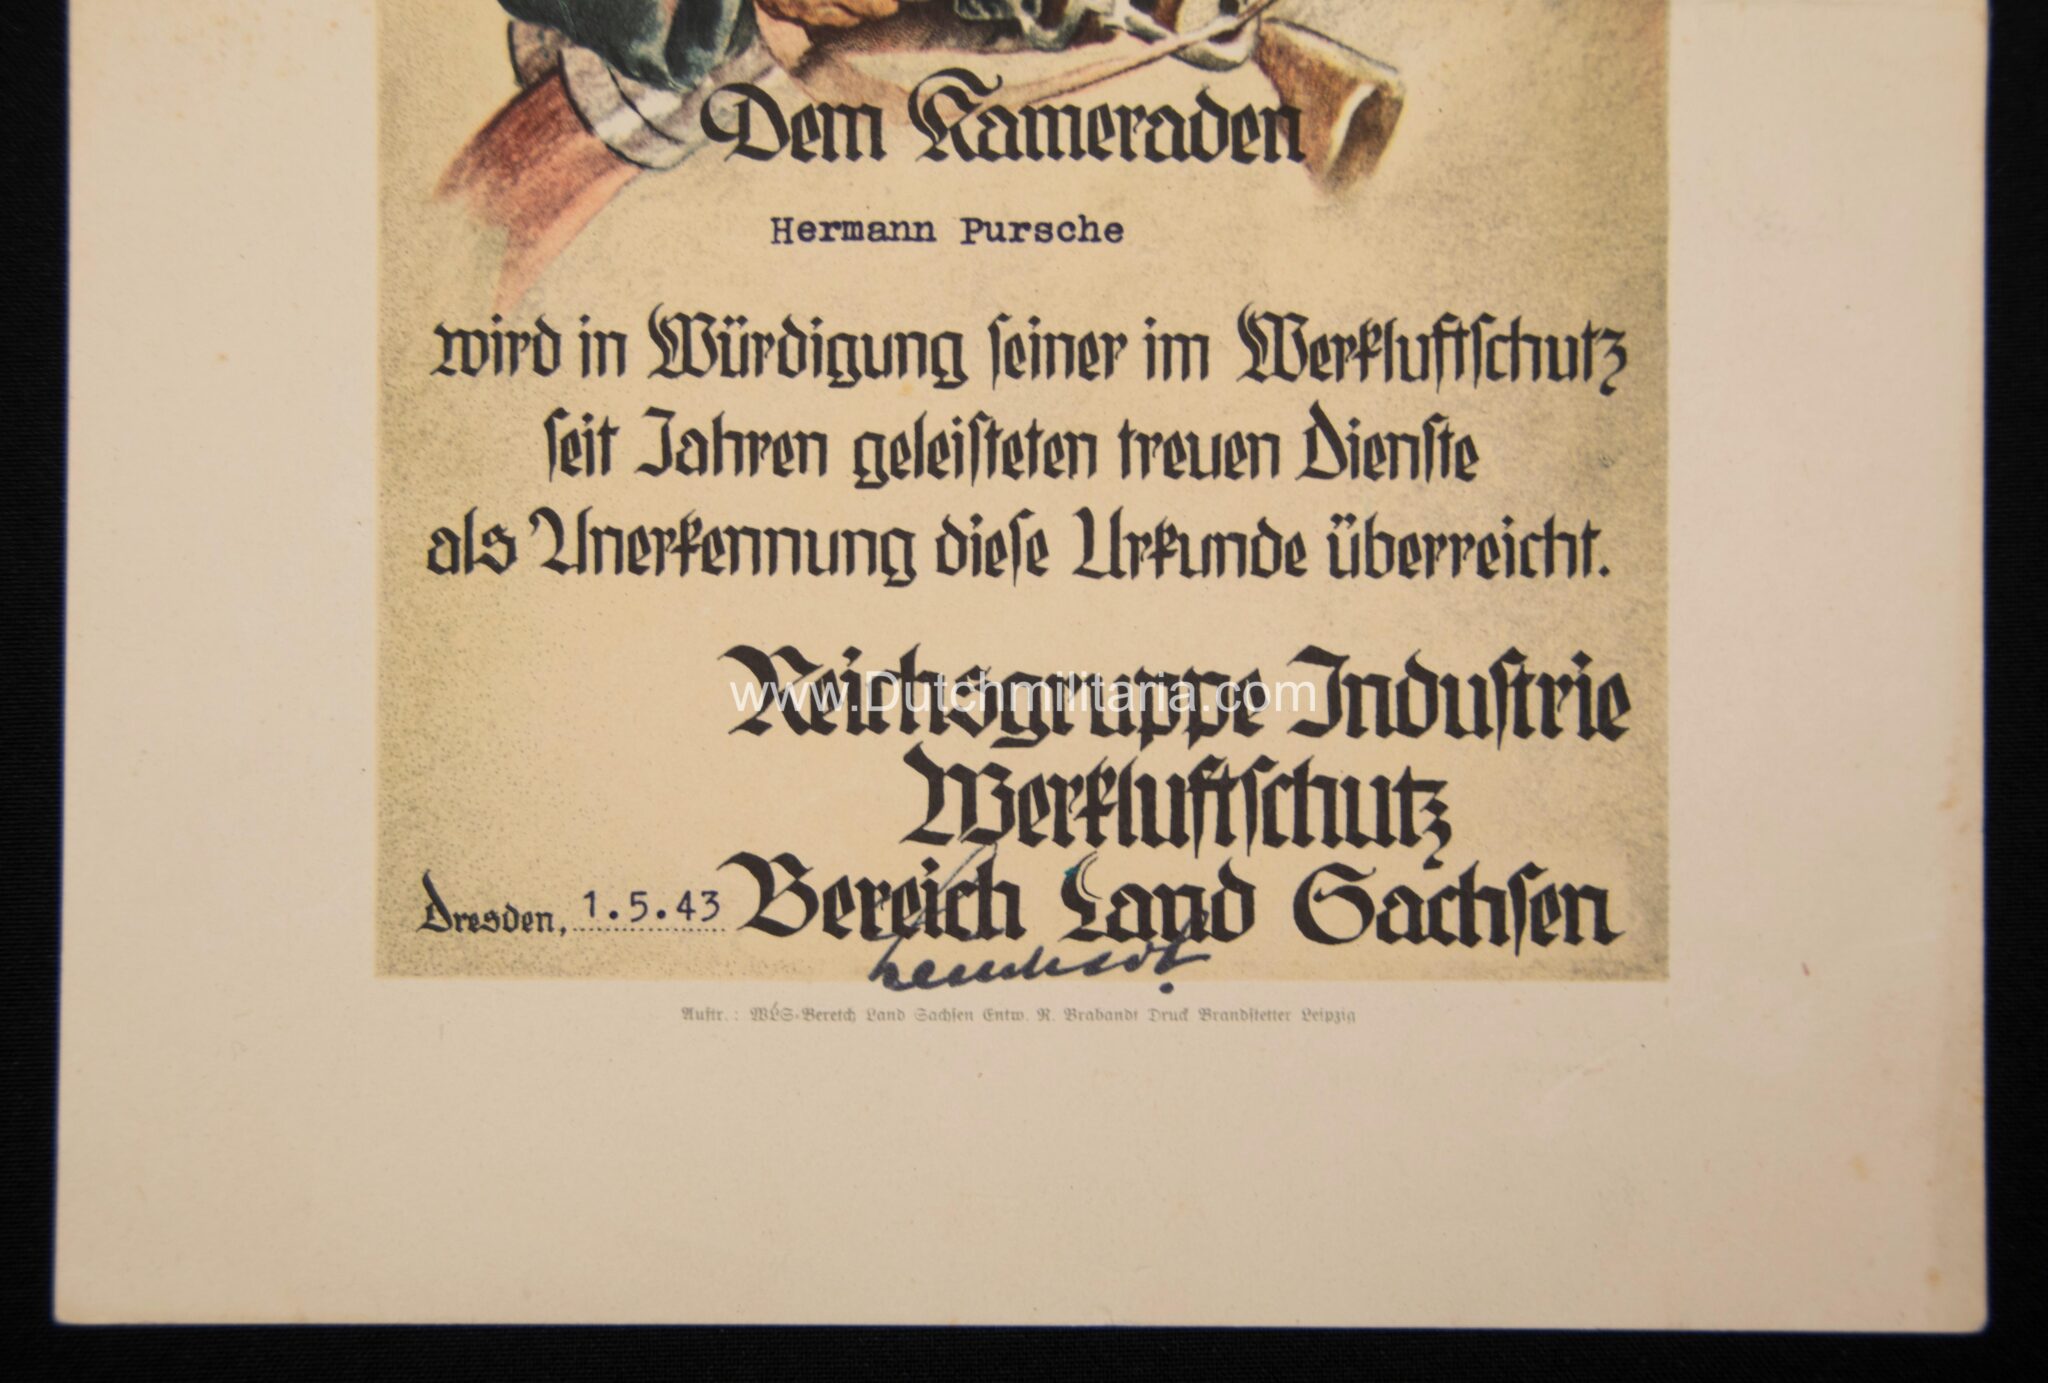 Dem Kameraden
Hermann Pursche
wird in Würdigung seiner im Werkluftschutz
seit Jahren geleisteten treuen Dienste
als Anerkennung diese Urkunde überreicht.
Reichsgruppe Industrie
www.Dutchmilitaria.com
Werkluftschutz
Dresden, 1.5.43 Bereich Land Sachsen
Auftr.: WLS-Bereich Land Sachsen Entw. R. Brabandt Druck Brandstetter Leipzig